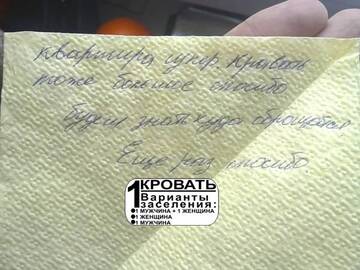 квартира супер. Кровать
тоже большое спасибо
будем знать куда обращаться
Еще раз спасибо
1 КРОВАТЬ
Варианты
заселения:
1 МУЖЧИНА + 1 ЖЕНЩИНА
1 ЖЕНЩИНА
1 МУЖЧИНА